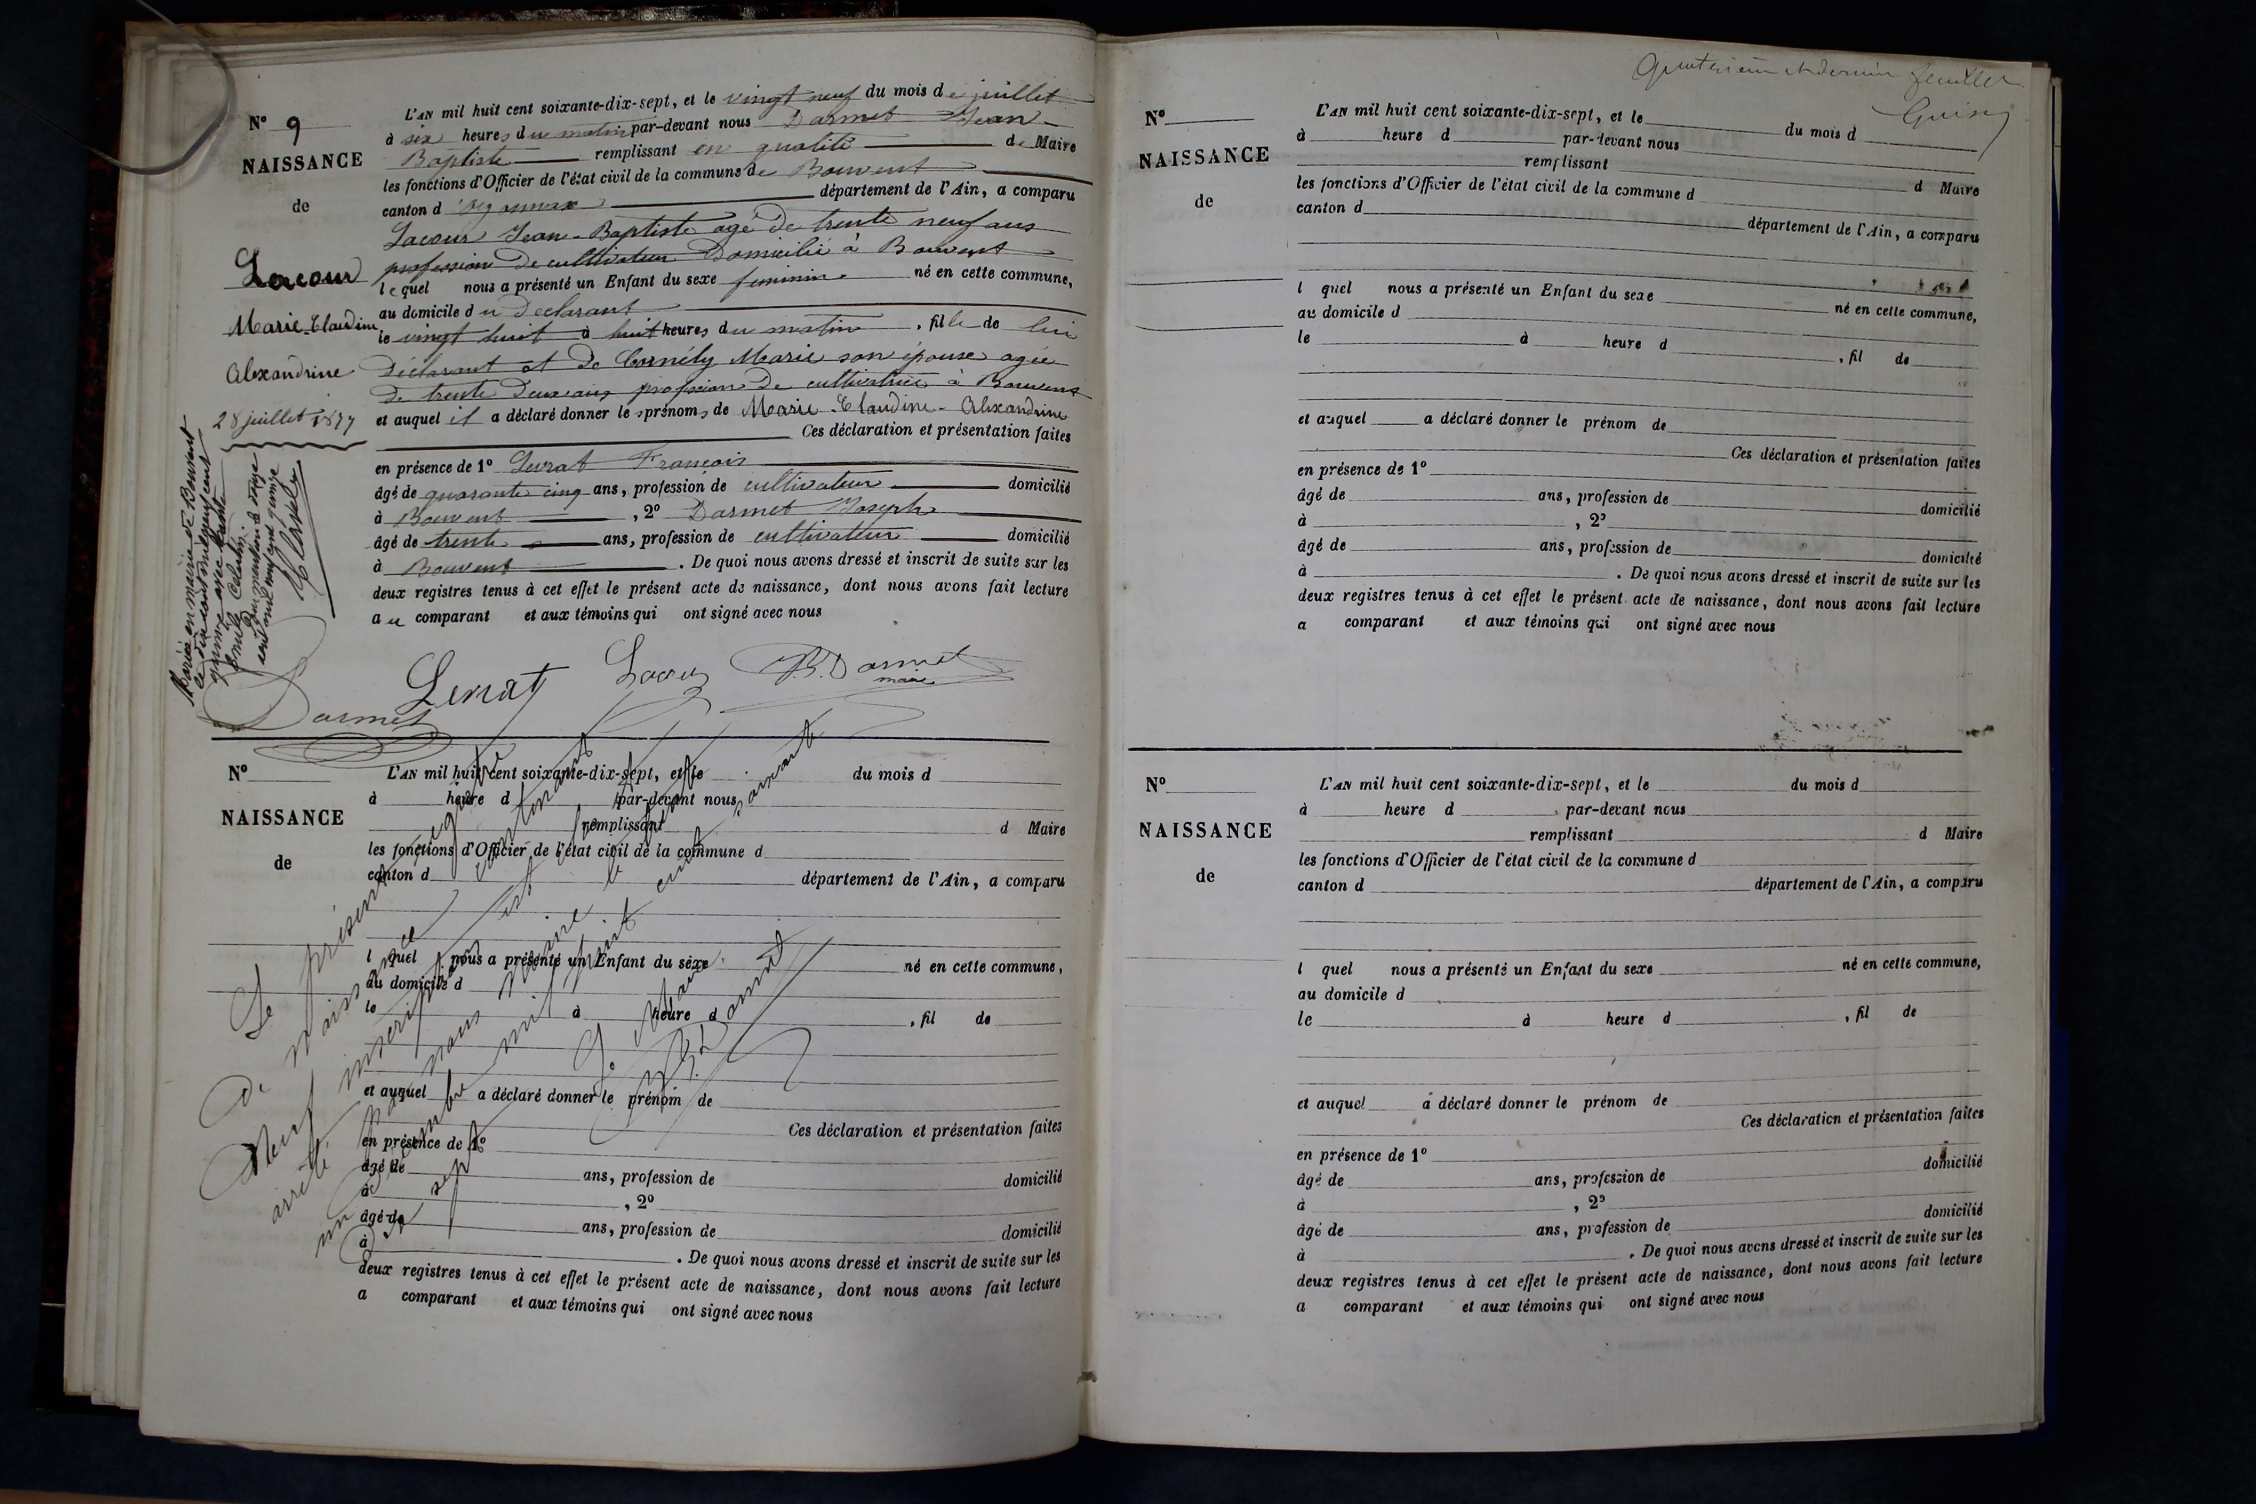 N° 9
NAISSANCE
de
Lacour
Marie-Claudine
Alexandrine
28 juillet 1877
L'AN mil huit cent soixante-dix-sept, et le vingt neuf du mois de juillet
à six heures du matin par-devant nous Darmet Jean
Baptiste remplissant en qualité de Maire
les fonctions d'Officier de l'état civil de la commune de Bouvent
canton d département de l'Ain, a comparu
Lacour Jean-Baptiste agé de trente neuf ans
profession de cultivateur Domicilié à Bouvent
lequel nous a présenté un Enfant du sexe feminin né en cette commune,
au domicile du Déclarant
le vingt huit à huit heures du matin, fille de lui
Déclarant et de Cornély Marie son épouse agée
de trente Deux ans profession De cultivatrice à Bouvent
et auquel il a déclaré donner les prénoms de Marie-Claudine-Alexandrine
Ces déclaration et présentation faites
en présence de 1° François
âgé de quarante cinq ans, profession de cultivateur domicilié
à Bouvent, 2° Darmet Joseph
âgé de trente ans, profession de cultivateur domicilié
à Bouvent. De quoi nous avons dressé et inscrit de suite sur les
deux registres tenus à cet effet le présent acte de naissance, dont nous avons fait lecture
au comparant et aux témoins qui ont signé avec nous
Mariée en mairie de Bouvent
Lacour
B. Darmet
maire
Darmet
N°
NAISSANCE
de
L'AN mil huit cent soixante-dix-sept, et le du mois d
à heure d par-devant nous
remplissant d Maire
les fonctions d'Officier de l'état civil de la commune d
canton d département de l'Ain, a comparu
l quel nous a présenté un Enfant du sexe né en cette commune,
au domicile d
le à heure d, fil de
et auquel a déclaré donner le prénom de
Ces déclaration et présentation faites
en présence de 1°
âgé de ans, profession de domicilié
à, 2°
âgé de ans, profession de domicilié
à. De quoi nous avons dressé et inscrit de suite sur les
deux registres tenus à cet effet le présent acte de naissance, dont nous avons fait lecture
a comparant et aux témoins qui ont signé avec nous
Le présent registre
de naissance contenant
Neuf inscriptions est
arrêté par nous maire le trente
un Décembre mil huit cent soixante
Dix sept
Le Maire
B. Darmet
feuillet
N°
NAISSANCE
de
L'AN mil huit cent soixante-dix-sept, et le du mois d
à heure d par-devant nous
remplissant d Maire
les fonctions d'Officier de l'état civil de la commune d
canton d département de l'Ain, a comparu
l quel nous a présenté un Enfant du sexe né en cette commune,
au domicile d
le à heure d, fil de
et auquel a déclaré donner le prénom de
Ces déclaration et présentation faites
en présence de 1°
âgé de ans, profession de domicilié
à, 2°
âgé de ans, profession de domicilié
à. De quoi nous avons dressé et inscrit de suite sur les
deux registres tenus à cet effet le présent acte de naissance, dont nous avons fait lecture
a comparant et aux témoins qui ont signé avec nous
N°
NAISSANCE
de
L'AN mil huit cent soixante-dix-sept, et le du mois d
à heure d, par-devant nous
remplissant d Maire
les fonctions d'Officier de l'état civil de la commune d
canton d département de l'Ain, a comparu
l quel nous a présenté un Enfant du sexe né en cette commune,
au domicile d
le à heure d, fil de
et auquel a déclaré donner le prénom de
Ces déclaration et présentation faites
en présence de 1°
âgé de ans, profession de domicilié
à, 2°
âgé de ans, profession de domicilié
à. De quoi nous avons dressé et inscrit de suite sur les
deux registres tenus à cet effet le présent acte de naissance, dont nous avons fait lecture
a comparant et aux témoins qui ont signé avec nous